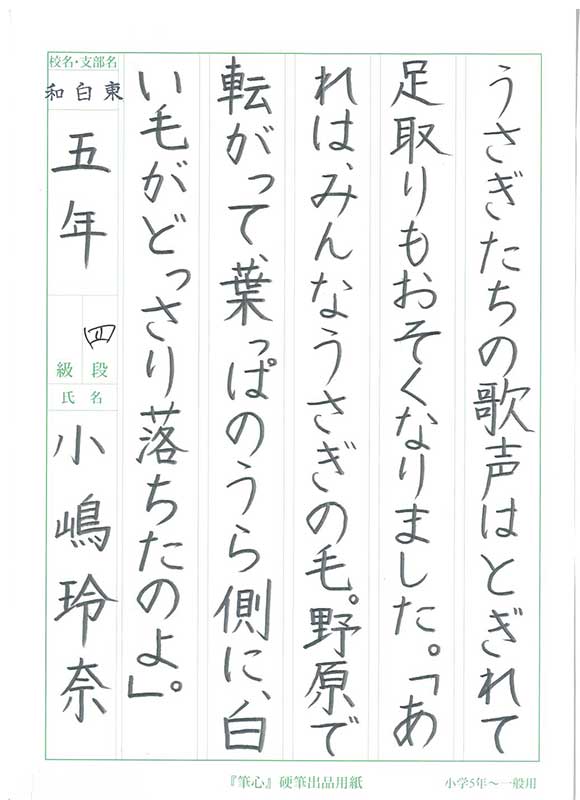 うさぎたちの歌声はとぎれて
足取りもおそくなりました。「あ
れは、みんなうさぎの毛。野原で
転がって、葉っぱのうら側に、白
い毛がどっさり落ちたのよ」。
校名・支部名
和白東
五年
四
級 段
氏名
小嶋玲奈
『筆心』硬筆出品用紙
小学5年〜一般用